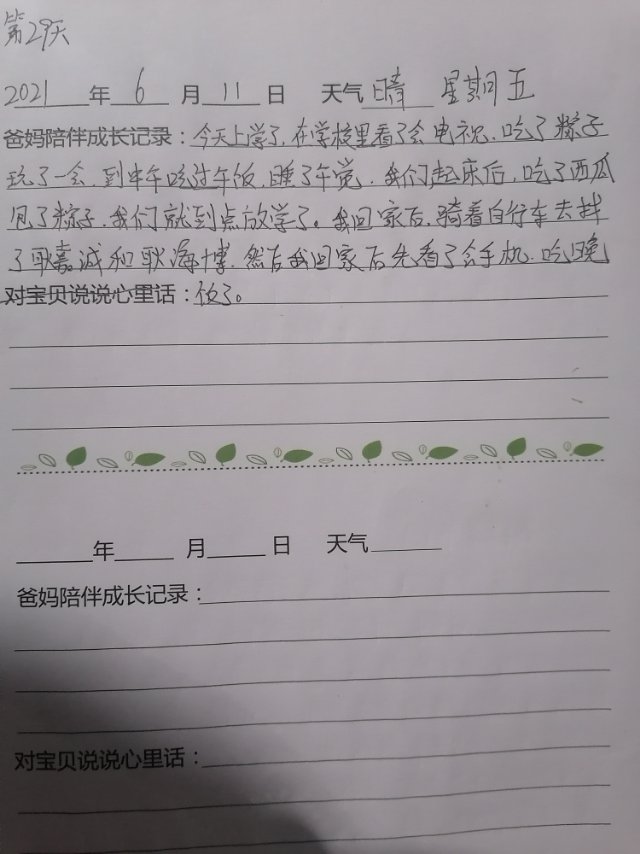 第29天
2021年6月11日 天气晴 星期五
爸妈陪伴成长记录：今天上学了，在学校里看了会电视，吃了粽子
玩了一会，到中午吃过午饭，睡了午觉，我们起床后，吃了西瓜
包了粽子，我们就到点放学了。我回家后，骑着自行车去找
了耿嘉诚和耿海博，然后我回家后先看了会手机，吃晚
对宝贝说说心里话：饭了。
年 月 日 天气
爸妈陪伴成长记录：
对宝贝说说心里话：